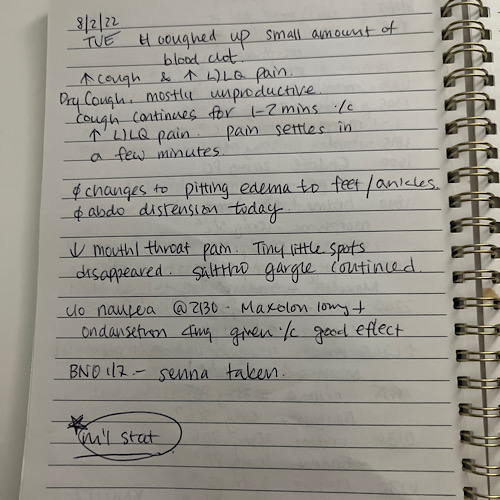 8/2/22
TUE H coughed up small amount of
blood clot.
↑ cough & ↑ L)LQ pain.
Dry Cough, mostly unproductive.
Cough continues for 1-2 mins ·/c
↑ L)LQ pain. pain settles in
a few minutes.
∅ changes to pitting edema to feet/ankles.
∅ abdo distension today.
↓ mouth/throat pain. Tiny little spots
disappeared. salt+H2O gargle continued.
c/o nausea @ 2130 - Maxolon 10mg +
ondansetron 4mg given ·/c good effect
BNO 1/7 - senna taken.
stat